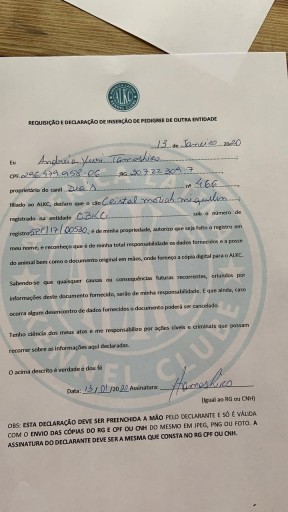 ALKC
REQUISIÇÃO E DECLARAÇÃO DE INSERÇÃO DE PEDIGREE DE OUTRA ENTIDADE
13 de Janeiro 2020
Eu Andreia Yumi
CPF
proprietário do canil Dua's nº 466
filiado ao ALKC, declaro que o cão Cristal
registrado na entidade CBKC sob o número de
registro SPC/17/00530, é de minha propriedade, autorizo que seja feito o registro em
meu nome, e reconheço que é de minha total responsabilidade os dados fornecidos e a posse
do animal bem como o documento original em mãos, onde forneço a cópia digital para o ALKC.
Sabendo-se que quaisquer causas ou consequências futuras recorrentes, oriundos por
informações deste documento fornecido, serão de minha responsabilidade. E que ainda, caso
ocorra algum desencontro de dados fornecidos o documento poderá ser cancelado.
Tenho ciência dos meus atos e me responsabilizo por ações cíveis e criminais que possam
recorrer sobre as informações aqui declaradas.
O acima descrito é verdade e dou fé
Data: 13/01/2020 Assinatura:
(Igual ao RG ou CNH)
OBS: ESTA DECLARAÇÃO DEVE SER PREENCHIDA A MÃO PELO DECLARANTE E SÓ É VÁLIDA
COM O ENVIO DAS CÓPIAS DO RG E CPF OU CNH DO MESMO EM JPEG, PNG OU FOTO. A
ASSINATURA DO DECLARANTE DEVE SER A MESMA QUE CONSTA NO RG CPF OU CNH.